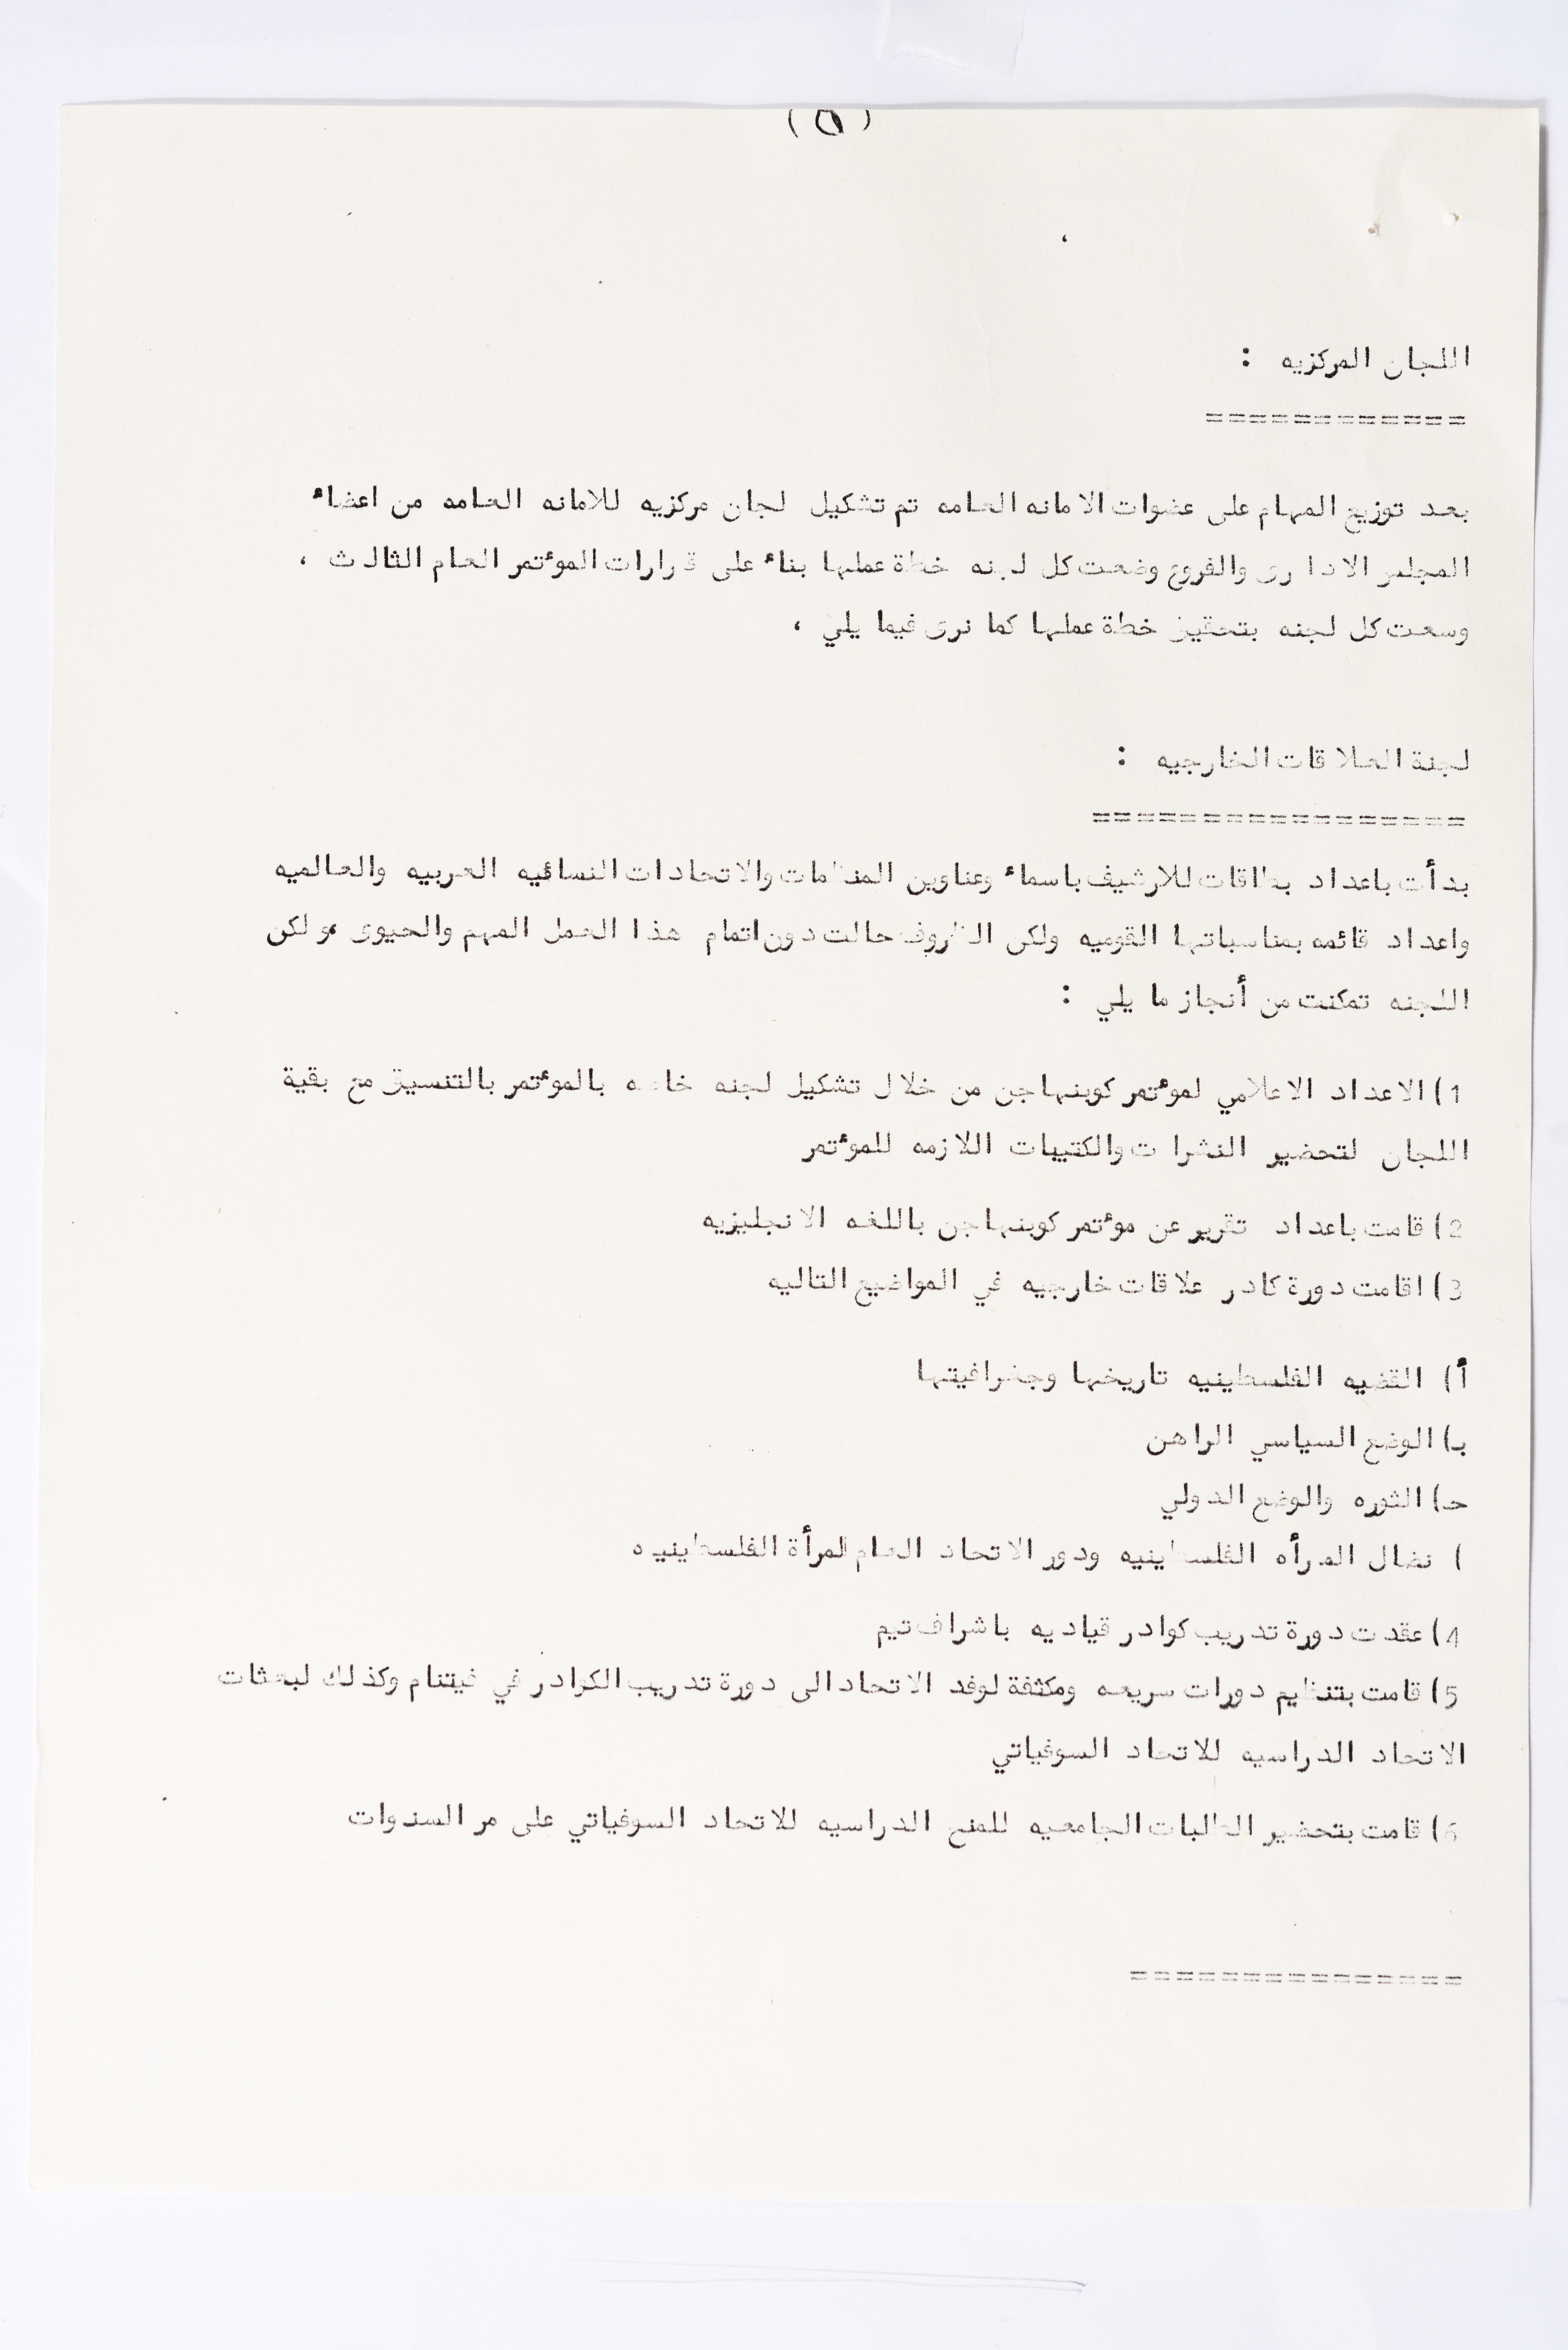 (٥)
اللجان المركزيه :
============
بعد توزيع المهام على عضوات الامانه العامه تم تشكيل لجان مركزيه للامانه العامه من اعضاء
المجلس الادارى والفروع وضعت كل لجنه خطة عملها بناء على قرارات الموءتمر العام الثالث ،
وسعت كل لجنه بتحقيق خطة عملها كما نرى فيما يلي ،
لجنة العلاقات الخارجيه :
=================
بدأت باعداد بطاقات للارشيف باسماء وعناوين المنظمات والاتحادات النسائيه العربيه والعالميه
واعداد قائمه بمناسباتها القوميه ولكن الظروف حالت دون اتمام هذا العمل المهم والحيوى ،ولكن
اللجنه تمكنت من أنجاز ما يلي :
1) الاعداد الاعلامي لموءتمر كوبنهاجن من خلال تشكيل لجنه خاصه بالموءتمر بالتنسيق مع بقية
اللجان لتحضير النشرات والكتيبات اللازمه للموءتمر
2) قامت باعداد تقرير عن موءتمر كوبنهاجن باللغه الانجليزيه
3) اقامت دورة كادر علاقات خارجيه في المواضيع التاليه
أ) القضيه الفلسطينيه تاريخها وجغرافيتها
بـ) الوضع السياسي الراهن
حـ) الثوره والوضع الدولي
) نضال المرأه الفلسطينيه ودور الاتحاد العام لمرأة الفلسطينيه
4) عقدت دورة تدريب كوادر قياديه باشراف تيم
5) قامت بتنظيم دورات سريعه ومكثفة لوفد الاتحاد الى دورة تدريب الكوادر في فيتنام وكذلك لبعثات
الاتحاد الدراسيه للاتحاد السوفياتي
6) قامت بتحضير الطالبات الجامعيه للمنح الدراسيه للاتحاد السوفياتي على مر السنوات
===============